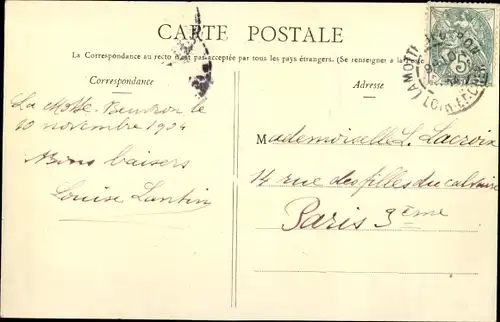 CARTE POSTALE
La Correspondance au recto n'est pas acceptée par tous les pays étrangers. (Se renseigner à la
Correspondance
Adresse
La Motte-Beuvron le
10 novembre 1904
Bons baisers
Louise Lantin
Mademoiselle L. Lacroix
14 rue des filles du calvaire
Paris 3ème
LAMOTTE-BEUVRON
LOIR-ET-CHER
5c